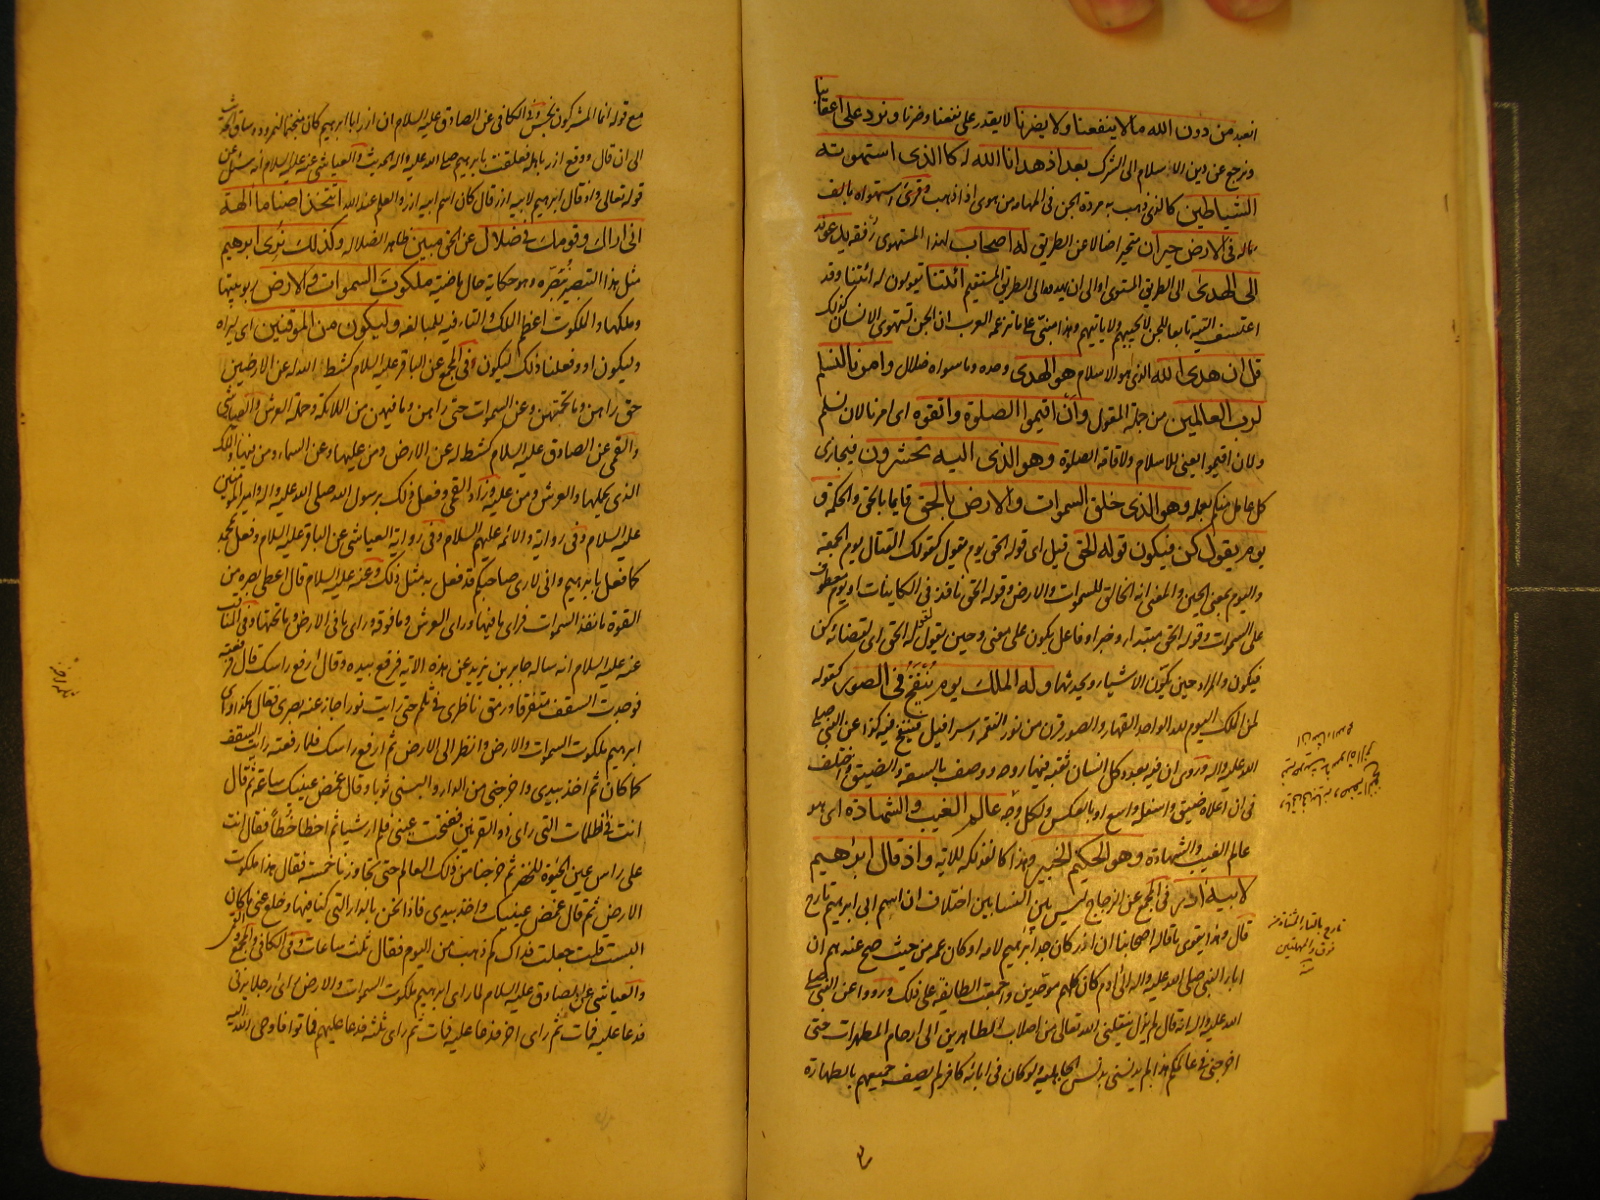 انعبد من دون الله ما لا ينفعنا ولا يضرنا لا يقدر على نفعنا وضرنا ونرد على اعقابنا
ونرجع عن دين الاسلام الى الشرك بعد اذ هدانا الله له كالذى استهوته
الشياطين كالذى ذهب به مردة الجن فى المهامه من هوى اذا ذهب وقرئ استهواه بالف
مماله فى الارض حيران متحيرا ضالا عن الطريق له اصحاب لهذا المستهوى رفقة يدعونه
الى الهدى الى الطريق المستوى او الى ان يهدوه الى الطريق المستقيم ائتنا يقولون له ائتنا وقد
اعتسف التيه تابعا للجن لا يجيبهم ولا ياتيهم وهذا مبنى على ما تزعمه العرب ان الجن تستهوى الانسان كذلك
قل ان هدى الله الذى هو الاسلام هو الهدى وحده وما سواه ضلال وامرنا لنسلم
لرب العالمين من جملة المقول وأن اقيموا الصلوة واتقوه اى امرنا لان نسلم
ولان اقيموا يعنى للاسلام ولاقامة الصلوة وهو الذى اليه تحشرون فيجازى
كل عامل منكم بعمله وهو الذى خلق السموات والارض بالحق قايما بالحق والحكمة و
يوم يقول كن فيكون قوله الحق قيل اى قوله الحق يوم يقول كقولك القتال يوم الجمعة
واليوم بمعنى الحين والمعنى انه الخالق للسموات والارض وقوله الحق نافذ فى الكاينات او يوم معطوف
على السموات وقوله الحق مبتدا وخبر او فاعل يكون على معنى وحين يقول لقوله الحق اى لقضائه كن
فيكون والمراد حين يكون الاشياء ويحدثها وله الملك يوم ينفخ فى الصور كقوله
لمن الملك اليوم لله الواحد القهار والصور قرن من نور التقمه اسرافيل فينفخ فيه كذا عن النبى صلى
الله عليه واله وروى ان فيه بعدد كل انسان ثقبة فيها روحه ووصف بالسعة والضيق واختلف
فى ان اعلاه ضيق واسفله واسع او بالعكس ولكل وجه عالم الغيب والشهادة اى هو
عالم الغيب والشهادة وهو الحكيم الخبير وهذا كالفذلكة للاية واذ قال ابراهيم
لابيه ازر فى المجمع عن الزجاج ليس بين النسابين اختلاف ان اسم ابى ابراهيم تارخ
قال وهذا يقوى ما قاله اصحابنا ان ازر كان جد ابراهيم لامه او كان عمه من حيث صح عندهم ان
اباء النبى صلى الله عليه واله الى ادم كان كلهم موحدين واجمعت الطايفة على ذلك ورووا عن النبى صلى
الله عليه واله انه قال لم يزل ينقلنى الله تعالى من اصلاب الطاهرين الى ارحام المطهرات حتى
اخرجنى فى عالمكم هذا لم يدنسنى بدنس الجاهلية ولو كان فى ابائه كافر لم يصف جميعهم بالطهارة
تارخ بالتاء المثناة من
فوق والمهملتين
مع قوله انما المشركون نجس وفى الكافى عن الصادق عليه السلام ان ازر ابا ابراهيم كان منجما لنمرود وساق الحديث
الى ان قال ووقع ازر باهله فعلقت بابراهيم صلى الله عليه واله الحديث والعياشى عنه عليه السلام انه سئل عن
قوله تعالى واذ قال ابراهيم لابيه ازر قال كان اسم ابيه ازر والعلم عند الله اتتخذ اصناما الهة
انى اراك وقومك فى ضلال عن الحق مبين ظاهر الضلالة وكذلك نرى ابرهيم
مثل هذا التبصير نبصره وهو حكاية حال ماضية ملكوت السموات والارض ربوبيتها
وملكها والملكوت اعظم الملك والتاء فيه للمبالغة وليكون من الموقنين اى ليراه
وليكون او وفعلنا ذلك ليكون وفى المجمع عن الباقر عليه السلام كشط الله له عن الارضين
حتى راهن وما تحتهن وعن السموات حتى راهن وما فيهن من الملائكة وحملة العرش والعياشى
والقمى عن الصادق عليه السلام كشط له عن الارض ومن عليها وعن السماء ومن فيها والملك
الذى يحملها والعرش ومن عليه وزاد القمى وفعل ذلك برسول الله صلى الله عليه واله وامير المؤمنين
عليه السلام وفى رواية والائمة عليهم السلام وفى رواية العياشى عن الباقر عليه السلام وفعل بمحمد
كما فعل بابرهيم وانى لارى صاحبكم قد فعل به مثل ذلك وعنه عليه السلام قال اعطى بصره من
القوة ما نفذ السموات فراى ما فيها وراى العرش وما فوقه وراى ما فى الارض وما تحتها وفى المناقب
عنه عليه السلام انه ساله جابر بن يزيد عن هذه الاية فرفع بيده وقال ارفع راسك قال فرفعته
فوجدت السقف متفرقا ورمق ناظرى فى ثلم حتى رايت نورا حار عنه بصرى فقال هكذا راى
ابرهيم ملكوت السموات والارض وانظر الى الارض ثم ارفع راسك فلما رفعته رايت السقف
كما كان ثم اخذ بيدى واخرجنى من الدار والبسنى ثوبا وقال غمض عينيك ساعة ثم قال
انت فى الظلمات التى راى ذو القرنين ففتحت عينى فلم ار شيئا ثم اخطا خطأ فقال انت
على راس عين الحيوة للخضر ثم خرجنا من ذلك العالم حتى تجاوزنا خمسة فقال هذا ملكوت
الارض ثم قال غمض عينيك واخذ بيدى فاذا نحن بالدار التى كنا فيها وخلع عنى ما كان
البسنى فقلت جعلت فداك كم ذهب من اليوم فقال ثلث ساعات وفى الكافى والمجمع والقمى
والعياشى عن الصادق عليه السلام لما راى ابرهيم ملكوت السموات والارض راى رجلا يزنى
فدعا عليه فمات ثم راى اخر فدعا عليه فمات ثم راى ثلثة فدعا عليهم فماتوا فاوحى الله اليه